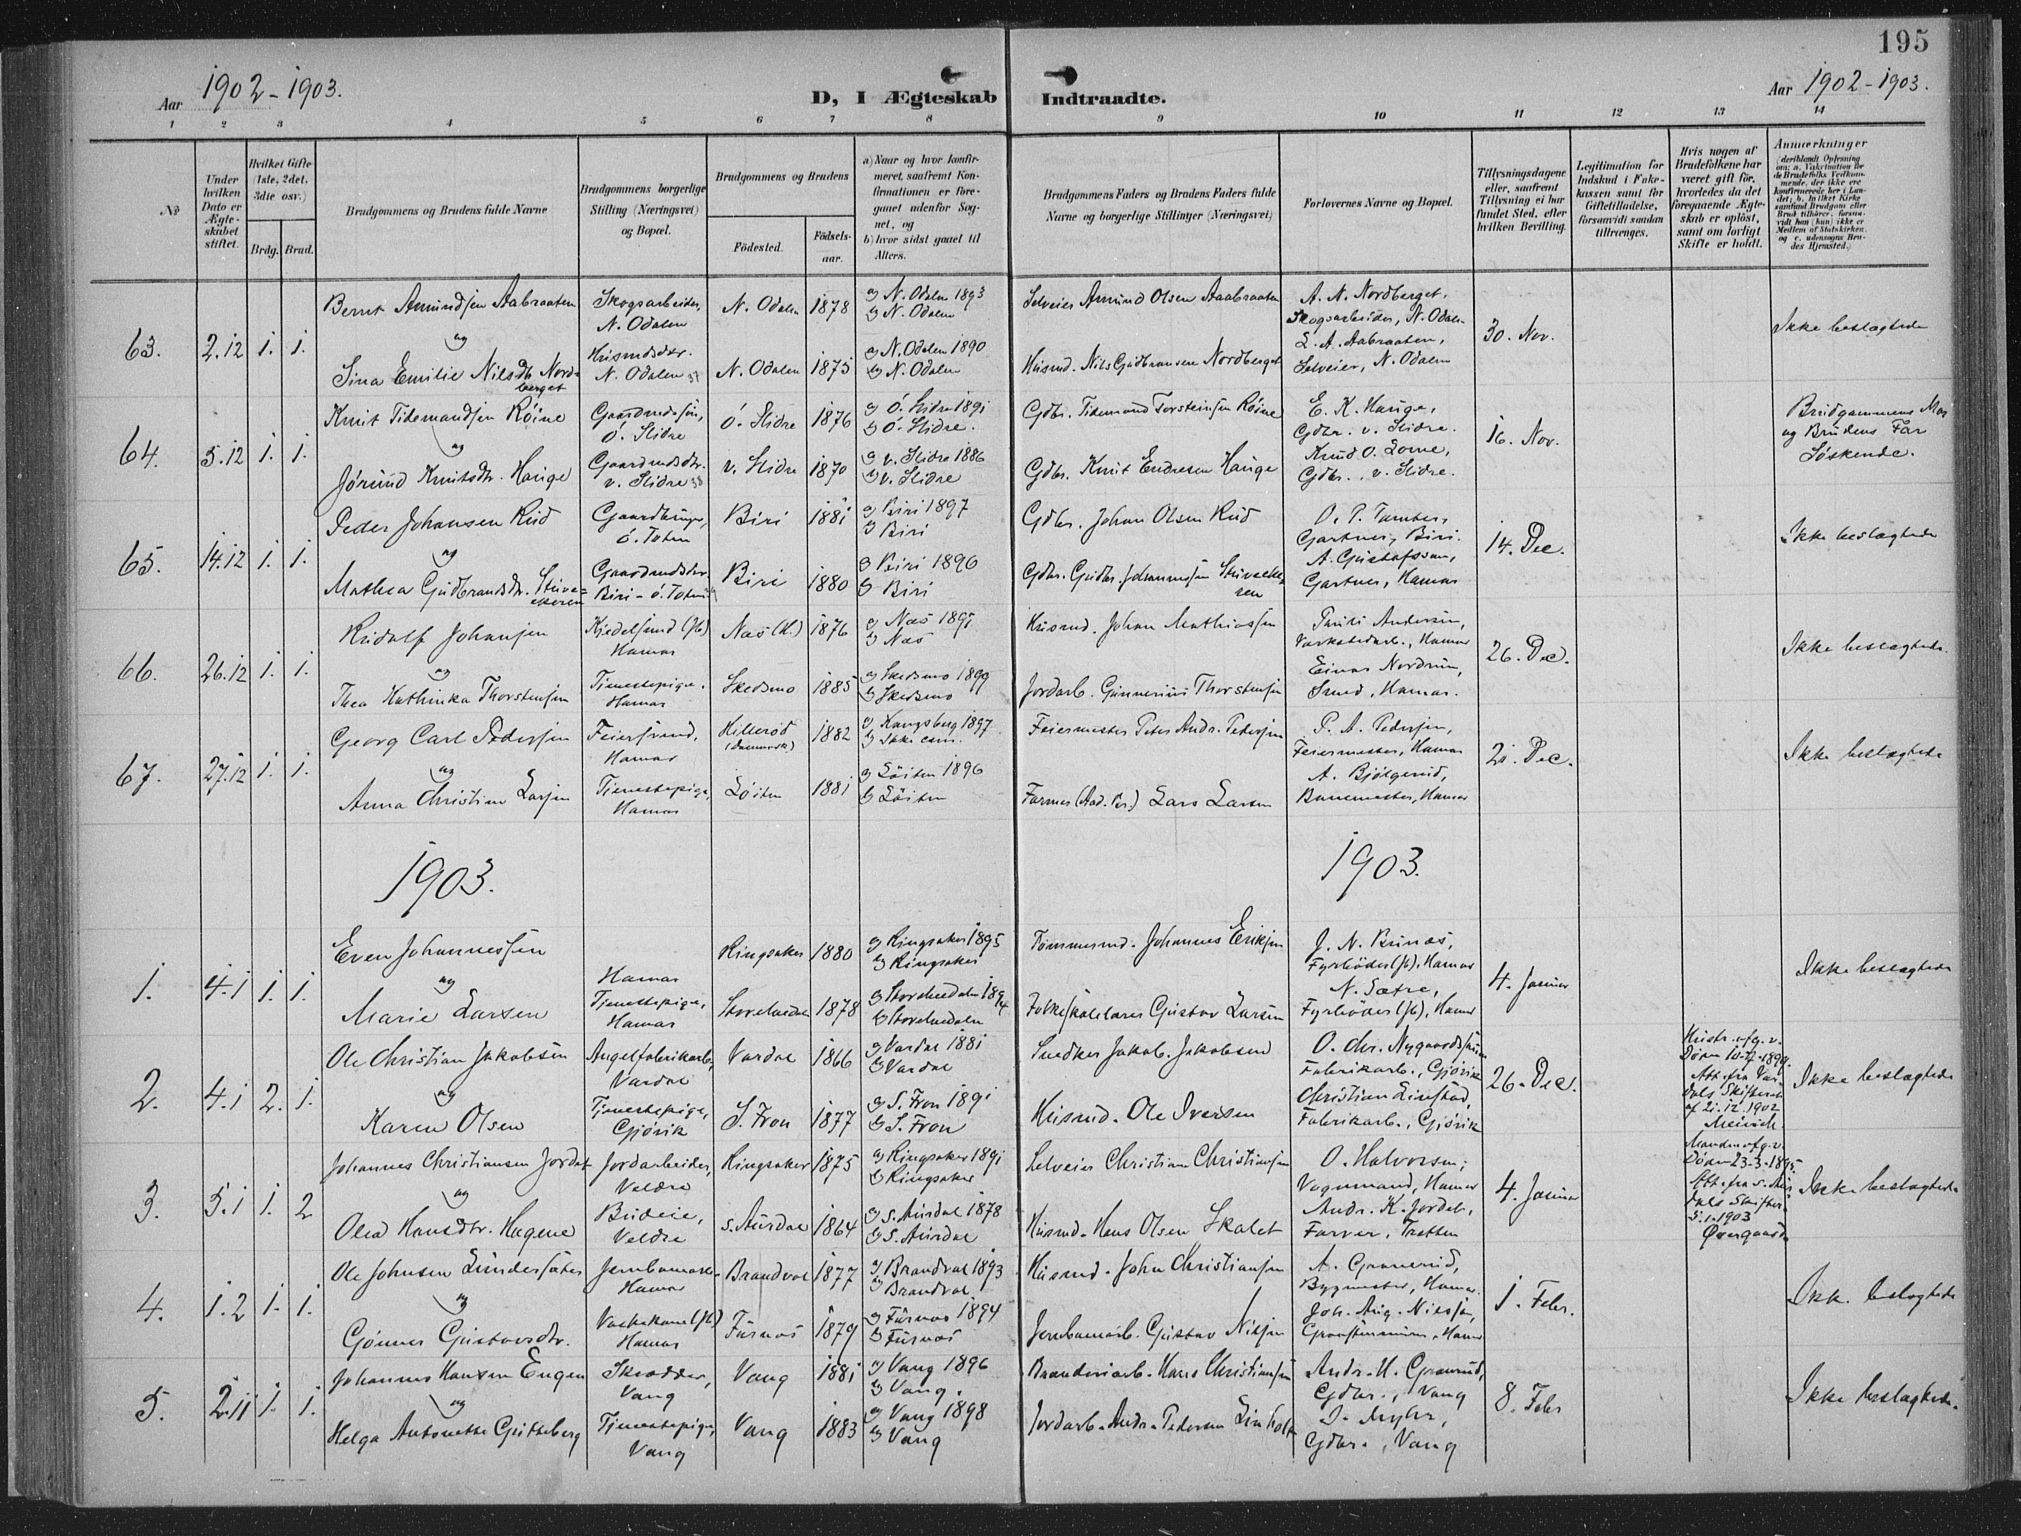 195
Aar 1902-1903.
D, I Ægteskab Indtraadte.
Aar 1902-1903.
1 2 3 4 5 6 7 8 9 10 11 12 13 14
No
Under hvilken Dato er Ægteskabet stiftet.
Hvilket Gifte (1ste, 2det, 3die osv.)
Brdg. Brud.
Brudgommens og Brudens fulde Navne
Brudgommens borgerlige Stilling (Næringsvei) og Bopæl.
Brudgommens og Brudens
Fødested. Fødselsaar.
a) Naar og hvor konfirmeret, saafremt Konfirmationen er foregaaet udenfor Sognet, og
b) hvor sidst gaaet til Alters.
Brudgommens Faders og Brudens Faders fulde Navne og borgerlige Stillinger (Næringsvei)
Forlovernes Navne og Bopæl.
Tillysningsdagene eller, saafremt Tillysning ei har fundet Sted, efter hvilken Bevilling.
Legitimation for Indskud i Enkekassen samt for Giftetilladelse, forsaavidt saadan tiltrænges.
Hvis nogen af Brudefolkene har været gift før, hvorledes da det foregaaende Ægteskab er opløst, samt om lovligt Skifte er holdt.
Anmærkninger
63. 2.12 1. 1.
Bernt Amundsen Aabraaten
Skogsarbeider, N. Odalen
N. Odalen 1878
a) N. Odalen 1893
b) N. Odalen
Selveier Amund Olsen Aaabraaten
A. N. Nordberget, Skogsarbeider, N. Odalen
L. A. Aabraaten, Selveier, N. Odalen
30. Nov.
Ikke beslægtede
og
Sina Emilie Nilsdtr. Nordberget
Husmdsdtr. N. Odalen
N. Odalen 1875
a) N. Odalen 1890
b) N. Odalen
Husmd. Nils Gudbransen Nordberget
64. 5.12 1. 1.
Knut Tidemandsen Röine
Gaardmdssön, Ö. Slidre
Ö. Slidre 1876
a) Ö. Slidre 1891
b) Ö. Slidre.
Gdbr. Tidemand Torsteinsen Röine
E. K. Hauge, Gdbr. v. Slidre.
Knud O. Lome, Gdbr., v. Slidre.
16. Nov.
Brudgommens Mor og Brudens Far Søskende.
og
Jørund Knutsdtr. Hauge
Gaardmdsdtr. v. Slidre
v. Slidre 1870
a) v. Slidre 1886
b) v. Slidre
Gdbr. Knut Endresen Hauge
65. 14.12 1. 1.
Peder Johansen Rud
Gaardbruger, ö. Toten
Biri 1881
a) Biri 1897
b) Biri
Gdbr. Johan Olsen Rud
Gartner, Biri.
A. Gustafsson, Gartner, Hamar
14. Dec.
Ikke beslægtede
og
Mathea Gudbrandsdtr.
Gaardmdsdtr. Biri - ö. Toten
Biri 1880
a) Biri 1896
b) Biri
Gdbr. Gudbr. Johannessen
66. 26.12 1. 1.
Rudolf Johansen
Kjedelsmed (Jb) Hamar
Næs (H.) 1876
a) Næs 1891
b) Næs
Husmd. Johan Mathiassen
Andersen, Værkstedarb., Hamar
Einar Nordrum, Smed, Hamar.
26. Dec.
Ikke beslægtede.
og
Thea Kathinka Thorstensen
Tjenestepige, Hamar
Skedsmo 1885
a) Skedsmo 1899
b) Skedsmo
Jordarb. Gunnerius Thorstensen
67. 27.12 1. 1.
Georg Carl Pedersen
Feiersvend, Hamar
Hillerød (Danmark) 1882
a) Kongsberg 1897
b) Ikke com.
Feiermester Peter Andr. Pedersen
P. A. Pedersen, Feiermester, Hamar
A. Bjølgerud, Banemester, Hamar
21. Dec.
Ikke beslægtede
og
Anna Christine Larsen
Tjenestepige, Hamar
Löiten 1881
a) Löiten 1896
b) Löiten
Lars Larsen
1903.
1903.
1. 4.1 1. 1.
Even Johannessen
Hamar
Ringsaker 1880
a) Ringsaker 1895
b) Ringsaker
Tømmermd. Johannes Eriksen
J. N. Brunæs, Fyrbøder (Jb), Hamar
N. Sætre, Fyrbøder (Jb), Hamar
4. Januar
Ikke beslægtede
og
Marie Larsen
Tjenestepige, Hamar
Storelvedalen 1878
a) Storelvedalen 1894
b) Storelvedalen
Folkeskolelærer Gustav Larsen
2. 4.1 2. 1.
Ole Christian Jakobsen
Angelfabrikarb., Vardal
Vardal 1866
a) Vardal 1881
b) Vardal
Snedker Jakob Jakobsen
O. Chr. Nygaardshus, Fabrikarb., Gjøvik
Christian Linstad, Fabrikarb., Gjøvik
26. Dec.
Hustr. afg. v. Døden 10-7-1899. Att. fra Vardals Skifteret af 21.12.1902
Ikke beslægtede
og
Karen Olsen
Tjenestepige, Gjøvik
S. Fron 1877
a) S. Fron 1891
b) S. Fron
Husmd. Ole Iversen
3. 5.1 1. 2
Johannes Christiansen Jordet
Jordarbeider, Veldre
Ringsaker 1875
a) Ringsaker 1891
b) Ringsaker
Selveier Christian Christiansen
O. Halvorsen, Vognmand, Hamar
Andr. K. Jordet, Farver, Tretten
4. Januar
Manden afg. v. Døden 23-3-1895. Att. fra S. Aurdals Skifteret 5.1.1903
Ikke beslægtede
og
Olea Hansdtr. Hagene
Budeie, Veldre
S. Aurdal 1864
a) S. Aurdal 1878
b) S. Aurdal
Husmd. Hans Olsen Skalet
4. 1.2 1. 1.
Ole Johnsen Lundersæter
Hamar
Brandval 1877
a) Brandval 1893
b) Brandval
Husmd. John Christiansen
A. Granerud, Bygmester, Hamar
Joh. Aug. Nilssen, Hamar
1. Febr.
Ikke beslægtede
og
Gunner Gustavsdtr.
Vaskekone (Jb) Hamar
Furnes 1879
a) Furnes 1894
b) Furnes
Jernbanearb. Gustav Nilsen
5. 2.11 1. 1.
Johannes Hansen Engen
Skrædder, Vang
Vang 1881
a) Vang 1896
b) Vang.
Brænderiarb. Hans Christiansen
Andr. H. Granrud, Gdbr., Vang
Myhr, Gdbr., Vang
8. Febr
Ikke beslægtede.
og
Helga Antonette Gutteberg
Tjenestepige, Vang
Vang 1883
a) Vang 1898
b) Vang
Jordarb. Andr. Pedersen Linholt